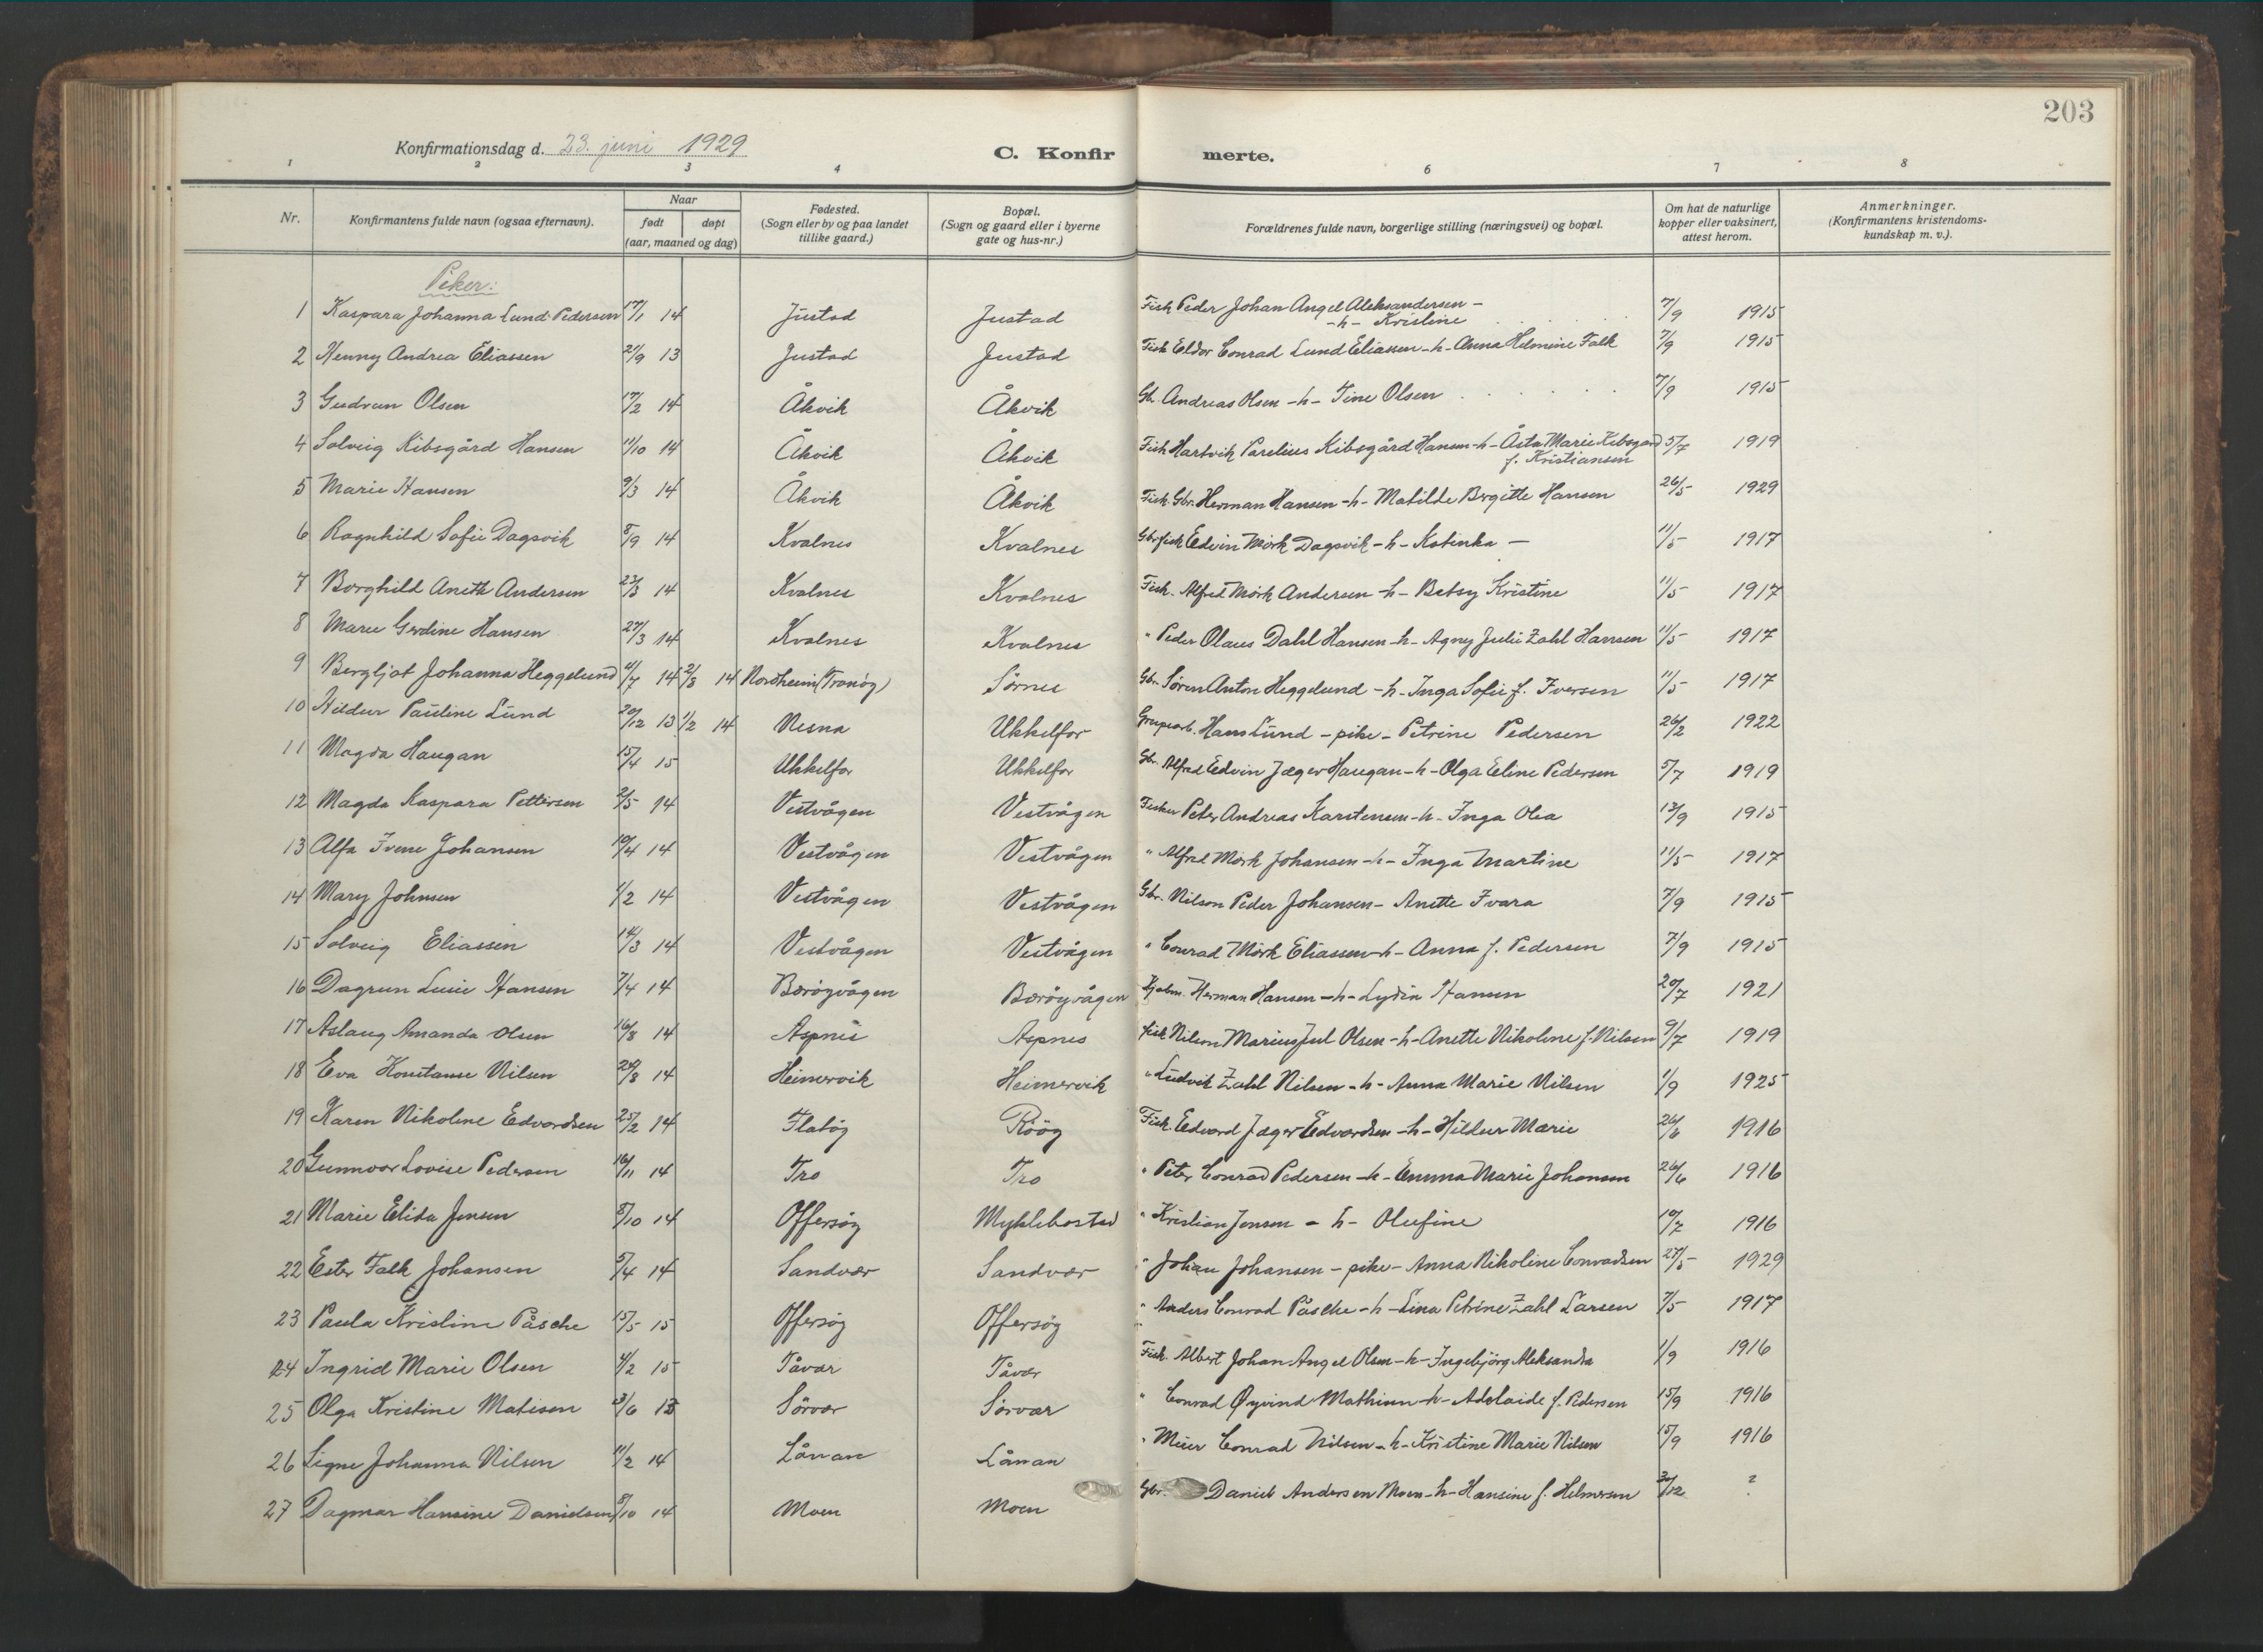 203
Konfirmationsdag d. 23. juni 1929
C. Konfirmerte.
1 2 3 4 6 7 8
Nr. Konfirmantens fulde navn (ogsaa efternavn). Naar født døpt (aar, maaned og dag) Fødested. (Sogn eller by og paa landet tillike gaard.) Bopæl. (Sogn og gaard eller i byerne gate og hus-nr.) Forældrenes fulde navn, borgerlige stilling (næringsvei) og bopæl. Om hat de naturlige kopper eller vaksinert, attest herom. Anmerkninger. (Konfirmantens kristendoms-kundskap m. v.).
Piker:
1 Kaspara Johanna Lund Pedersen 17/1 14 Justad Justad Fisk Peder Johan Angel Aleksandersen – -h- Kristine 7/9 1915
2 Henny Andrea Eliassen 21/9 13 Justad Justad Fisk Eldor Conrad Lund Eliassen -h- Anna Helmine Falk 7/9 1915
3 Gudrun Olsen 17/2 14 Åkvik Åkvik Gb. Andreas Olsen -h- Tine Olsen 7/9 1915
4 Solveig Kibsgård Hansen 11/10 14 Åkvik Åkvik Fisk Hartvik Parelius Kibsgård Hansen -h- Åsta Marie Kibsgård f. Kristiansen 5/7 1919
5 Marie Hansen 9/3 14 Åkvik Åkvik Fisk Gbr. Herman Hansen -h- Matilde Bergitte Hansen 26/5 1929
6 Ragnhild Sofie Dagsvik 8/9 14 Kvalnes Kvalnes Gbr fisk Edvin Mörk Dagsvik -h- Katinka – 11/5 1917
7 Borghild Aneth Andersen 23/3 14 Kvalnes Kvalnes Fisk. Alfred Mörk Andersen -h- Betsy Kristine 11/5 1917
8 Marie Gerdine Hansen 27/3 14 Kvalnes Kvalnes " Peder Olaus Dahl Hansen -h- Agny Julie Zahl Hansen 11/5 1917
9 Bergljot Johanna Heggelund 4/7 14 2/8 14 Nordheim (Tranöy) Sörnes Gbr. Sören Anton Heggelund -h- Inga Sofie f. Iversen 11/5 1917
10 Hildur Pauline Lund 20/12 13 1/2 14 Nesna Ukkelfor Grupearb. Hans Lund - pike - Petrine Pedersen 26/2 1922
11 Magda Haugan 15/4 15 Ukkelfor Ukkelfor Gbr. Alfred Edvin Jæger Haugan -h- Olga Eline Pedersen 5/7 1919
12 Magda Kaspara Pettersen 2/5 14 Vestvågen Vestvågen Fisker Peter Andreas Karstensen -h- Inga Olea 13/9 1915
13 Alfa Irene Johansen 10/4 14 Vestvågen Vestvågen " Alfred Mörk Johansen -h- Inga Martine 11/5 1917
14 Mary Johnsen 1/2 14 Vestvågen Vestvågen Gbr. Nilson Peder Johansen - Anette Ivara 7/9 1915
15 Solveig Eliassen 14/3 14 Vestvågen Vestvågen " Conrad Mörk Eliassen -h- Anna f. Pedersen 7/9 1915
16 Dagrun Lucie Hansen 7/4 14 Bæröyvågen Bæröyvågen Herman Hansen -h- Lydia Hansen 20/7 1921
17 Aslaug Amanda Olsen 16/8 14 Aspnes Aspnes fisk Nilson Marius Jul Olsen -h- Anette Nikoline f. Nilsen 9/7 1919
18 Eva Konstanse Nilsen 20/8 14 Heimervik Heimervik " Ludvik Zahl Nilsen -h- Anna Marie Nilsen 1/9 1925
19 Karen Nikoline Edvardsen 25/2 14 Flatöy Rööy Fisk. Edvard Jæger Edvardsen -h- Hildur Marie 26/6 1916
20 Gunnvor Lovise Pedersen 16/11 14 Tro Tro " Peter Conrad Pedersen -h- Emma Marie Johansen 26/6 1916
21 Marie Elida Jensen 8/10 14 Offersöy Myklebostad " Kristian Jensen -h- Olufine 10/7 1916
22 Ester Falk Johansen 5/4 14 Sandvær Sandvær " Johan Johansen - pike - Anna Nikoline Conradsen 27/5 1929
23 Paula Kristine Påsche 15/5 15 Offersöy Offersöy " Anders Conrad Påsche -h- Lina Petrine Zahl Larsen 7/5 1917
24 Ingrid Marie Olsen 4/2 15 Tåvær Tåvær Fisk. Albert Johan Angel Olsen -h- Ingebjörg Aleksandra 1/9 1916
25 Olga Kristine Matisen 3/6 13 Sörvær Sörvær " Conrad Øyvind Mathisen -h- Adelaide f. Pedersen 15/9 1916
26 Signe Johanna Nilsen 11/2 14 Lånan Lånan " Meier Conrad Nilsen -h- Kristine Marie Nilsen 15/9 1916
27 Dagmar Hansine Danielsen 8/10 14 Moen Moen Gbr. Daniel Andersen Moen -h- Hansine f. Helmersen 30/12 ?